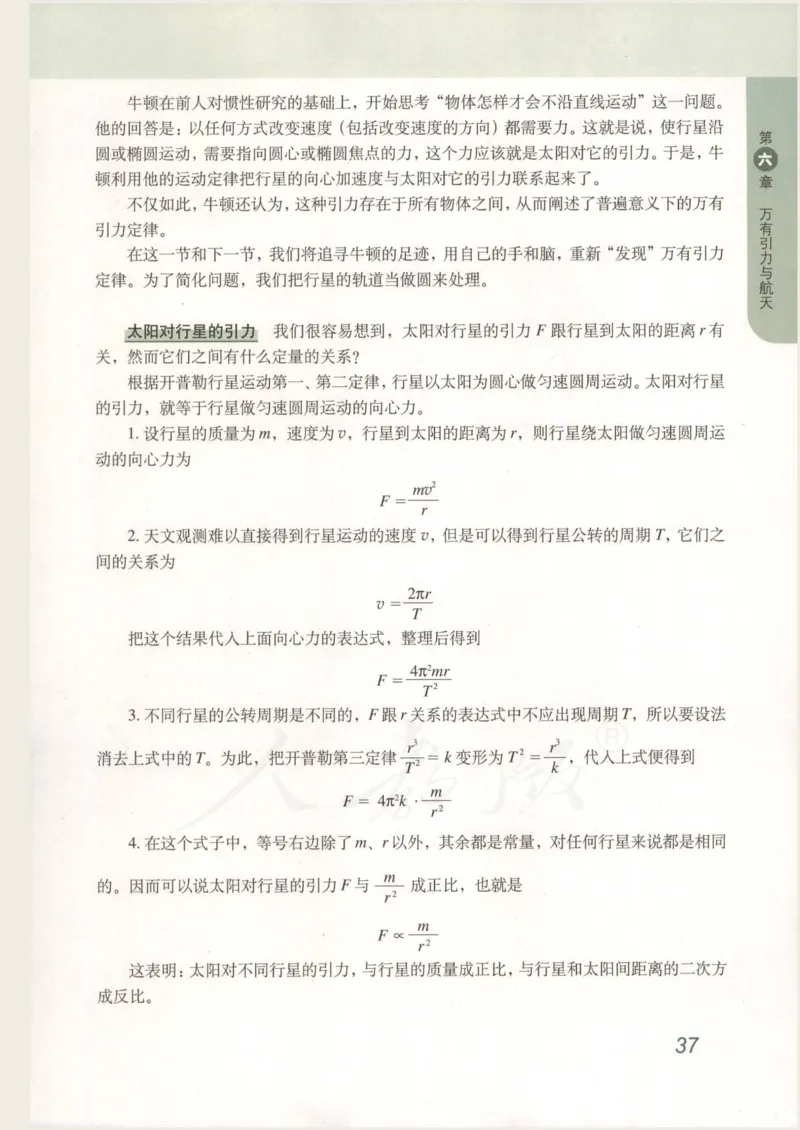 牛顿在前人对惯性研究的基础上，开始思考“物体怎样才会不沿直线运动”这一问题。
他的回答是：以任何方式改变速度（包括改变速度的方向）都需要力。这就是说，使行星沿
圆或椭圆运动，需要指向圆心或椭圆焦点的力，这个力应该就是太阳对它的引力。于是，牛
顿利用他的运动定律把行星的向心加速度与太阳对它的引力联系起来了。
不仅如此，牛顿还认为，这种引力存在于所有物体之间，从而阐述了普遍意义下的万有
引力定律。
在这一节和下一节，我们将追寻牛顿的足迹，用自己的手和脑，重新“发现”万有引力
定律。为了简化问题，我们把行星的轨道当做圆来处理。
太阳对行星的引力 我们很容易想到，太阳对行星的引力 F 跟行星到太阳的距离 r 有
关，然而它们之间有什么定量的关系？
根据开普勒行星运动第一、第二定律，行星以太阳为圆心做匀速圆周运动。太阳对行星
的引力，就等于行星做匀速圆周运动的向心力。
1. 设行星的质量为 m，速度为 v，行星到太阳的距离为 r，则行星绕太阳做匀速圆周运
动的向心力为
F = mv²/r
2. 天文观测难以直接得到行星运动的速度 v，但是可以得到行星公转的周期 T，它们之
间的关系为
v = 2πr/T
把这个结果代入上面向心力的表达式，整理后得到
F = 4π²mr/T²
3. 不同行星的公转周期是不同的，F 跟 r 关系的表达式中不应出现周期 T，所以要设法
消去上式中的 T。为此，把开普勒第三定律 r³/T² = k 变形为 T² = r³/k，代入上式便得到
F = 4π²k · m/r²
4. 在这个式子中，等号右边除了 m、r 以外，其余都是常量，对任何行星来说都是相同
的。因而可以说太阳对行星的引力 F 与 m/r² 成正比，也就是
F ∝ m/r²
这表明：太阳对不同行星的引力，与行星的质量成正比，与行星和太阳间距离的二次方
成反比。
37
第六章 万有引力与航天
人教版®